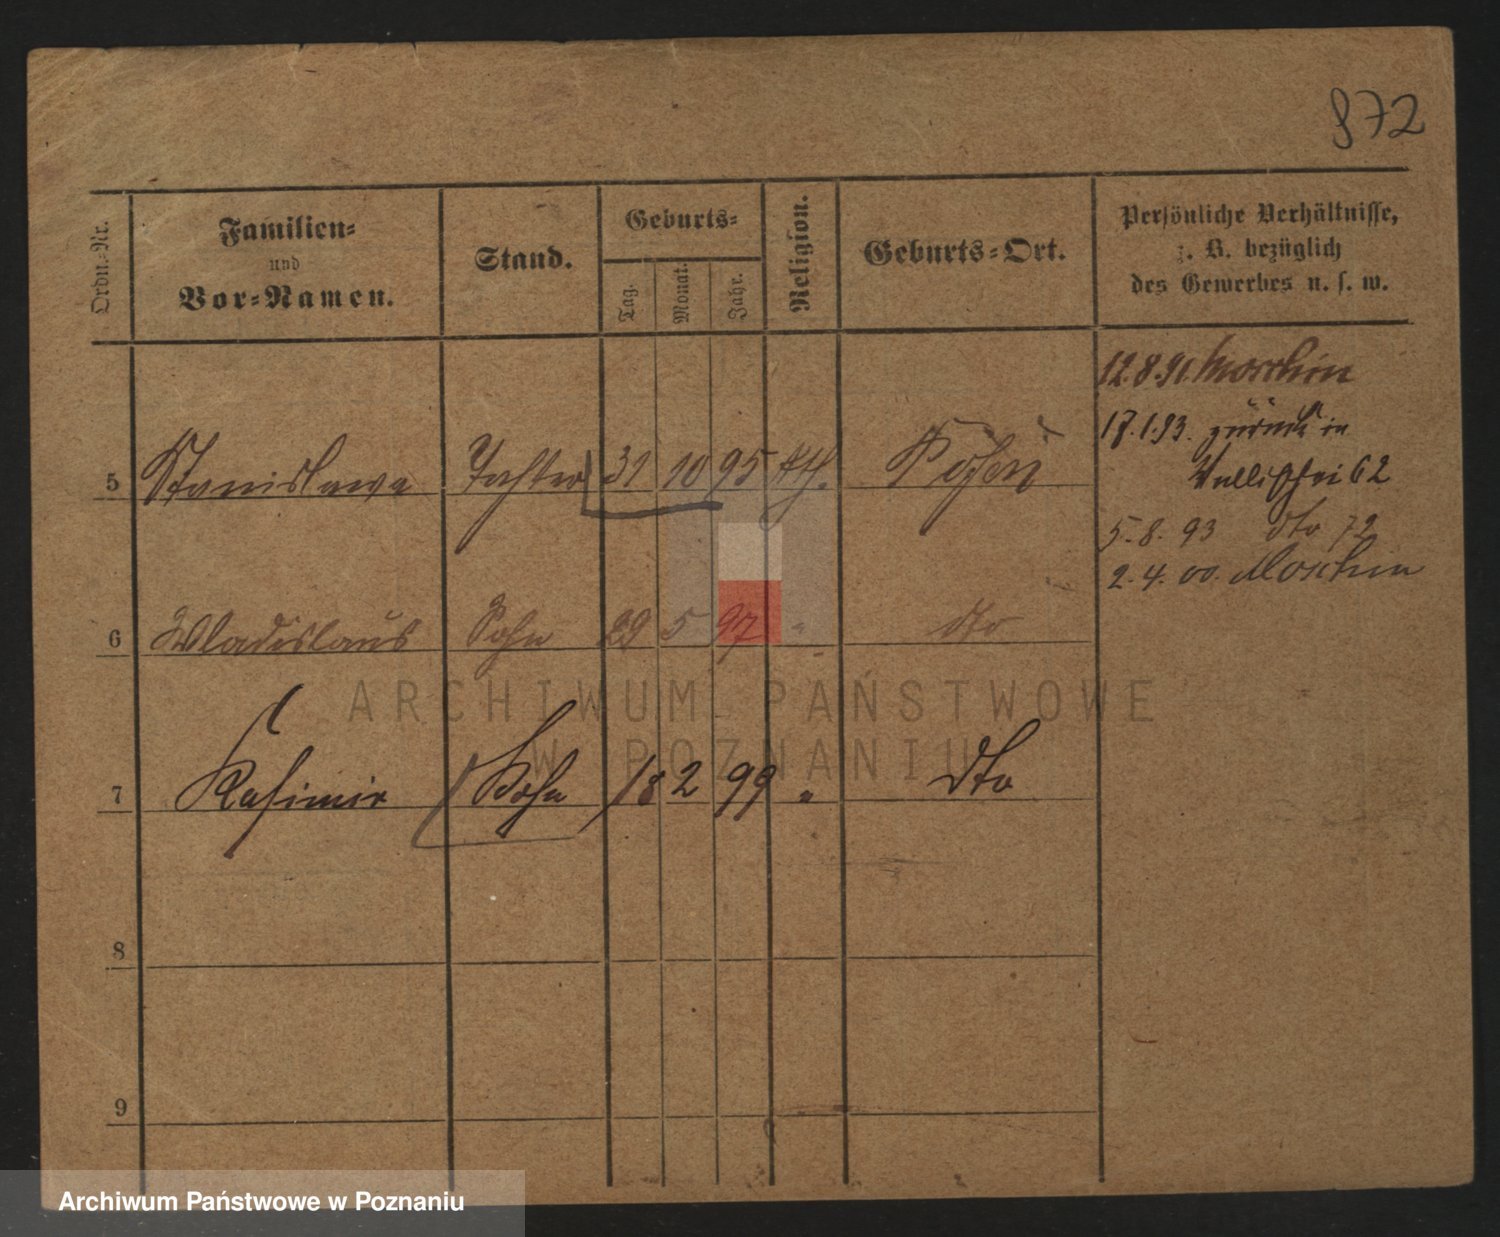 872
Ordn.-Nr.
Familien-
und
Vor-Namen.
Stand.
Geburts-
Tag.
Monat.
Jahr.
Religion.
Geburts-Ort.
Persönliche Verhältnisse,
z. B. bezüglich
des Gewerbes u. s. w.
12.8.91. Moschin
17.1.93. zurück in
Wallischei 62
5.8.93 dto 72
2.4.00. Moschin
5 Stanislawa Tochter 31 10 95 kth. Posen
6 Wladislaus Sohn 29 5 97 " dto
7 Kasimir Sohn 18 2 99 " dto
8
9
ARCHIWUM PAŃSTWOWE
W POZNANIU
Archiwum Państwowe w Poznaniu